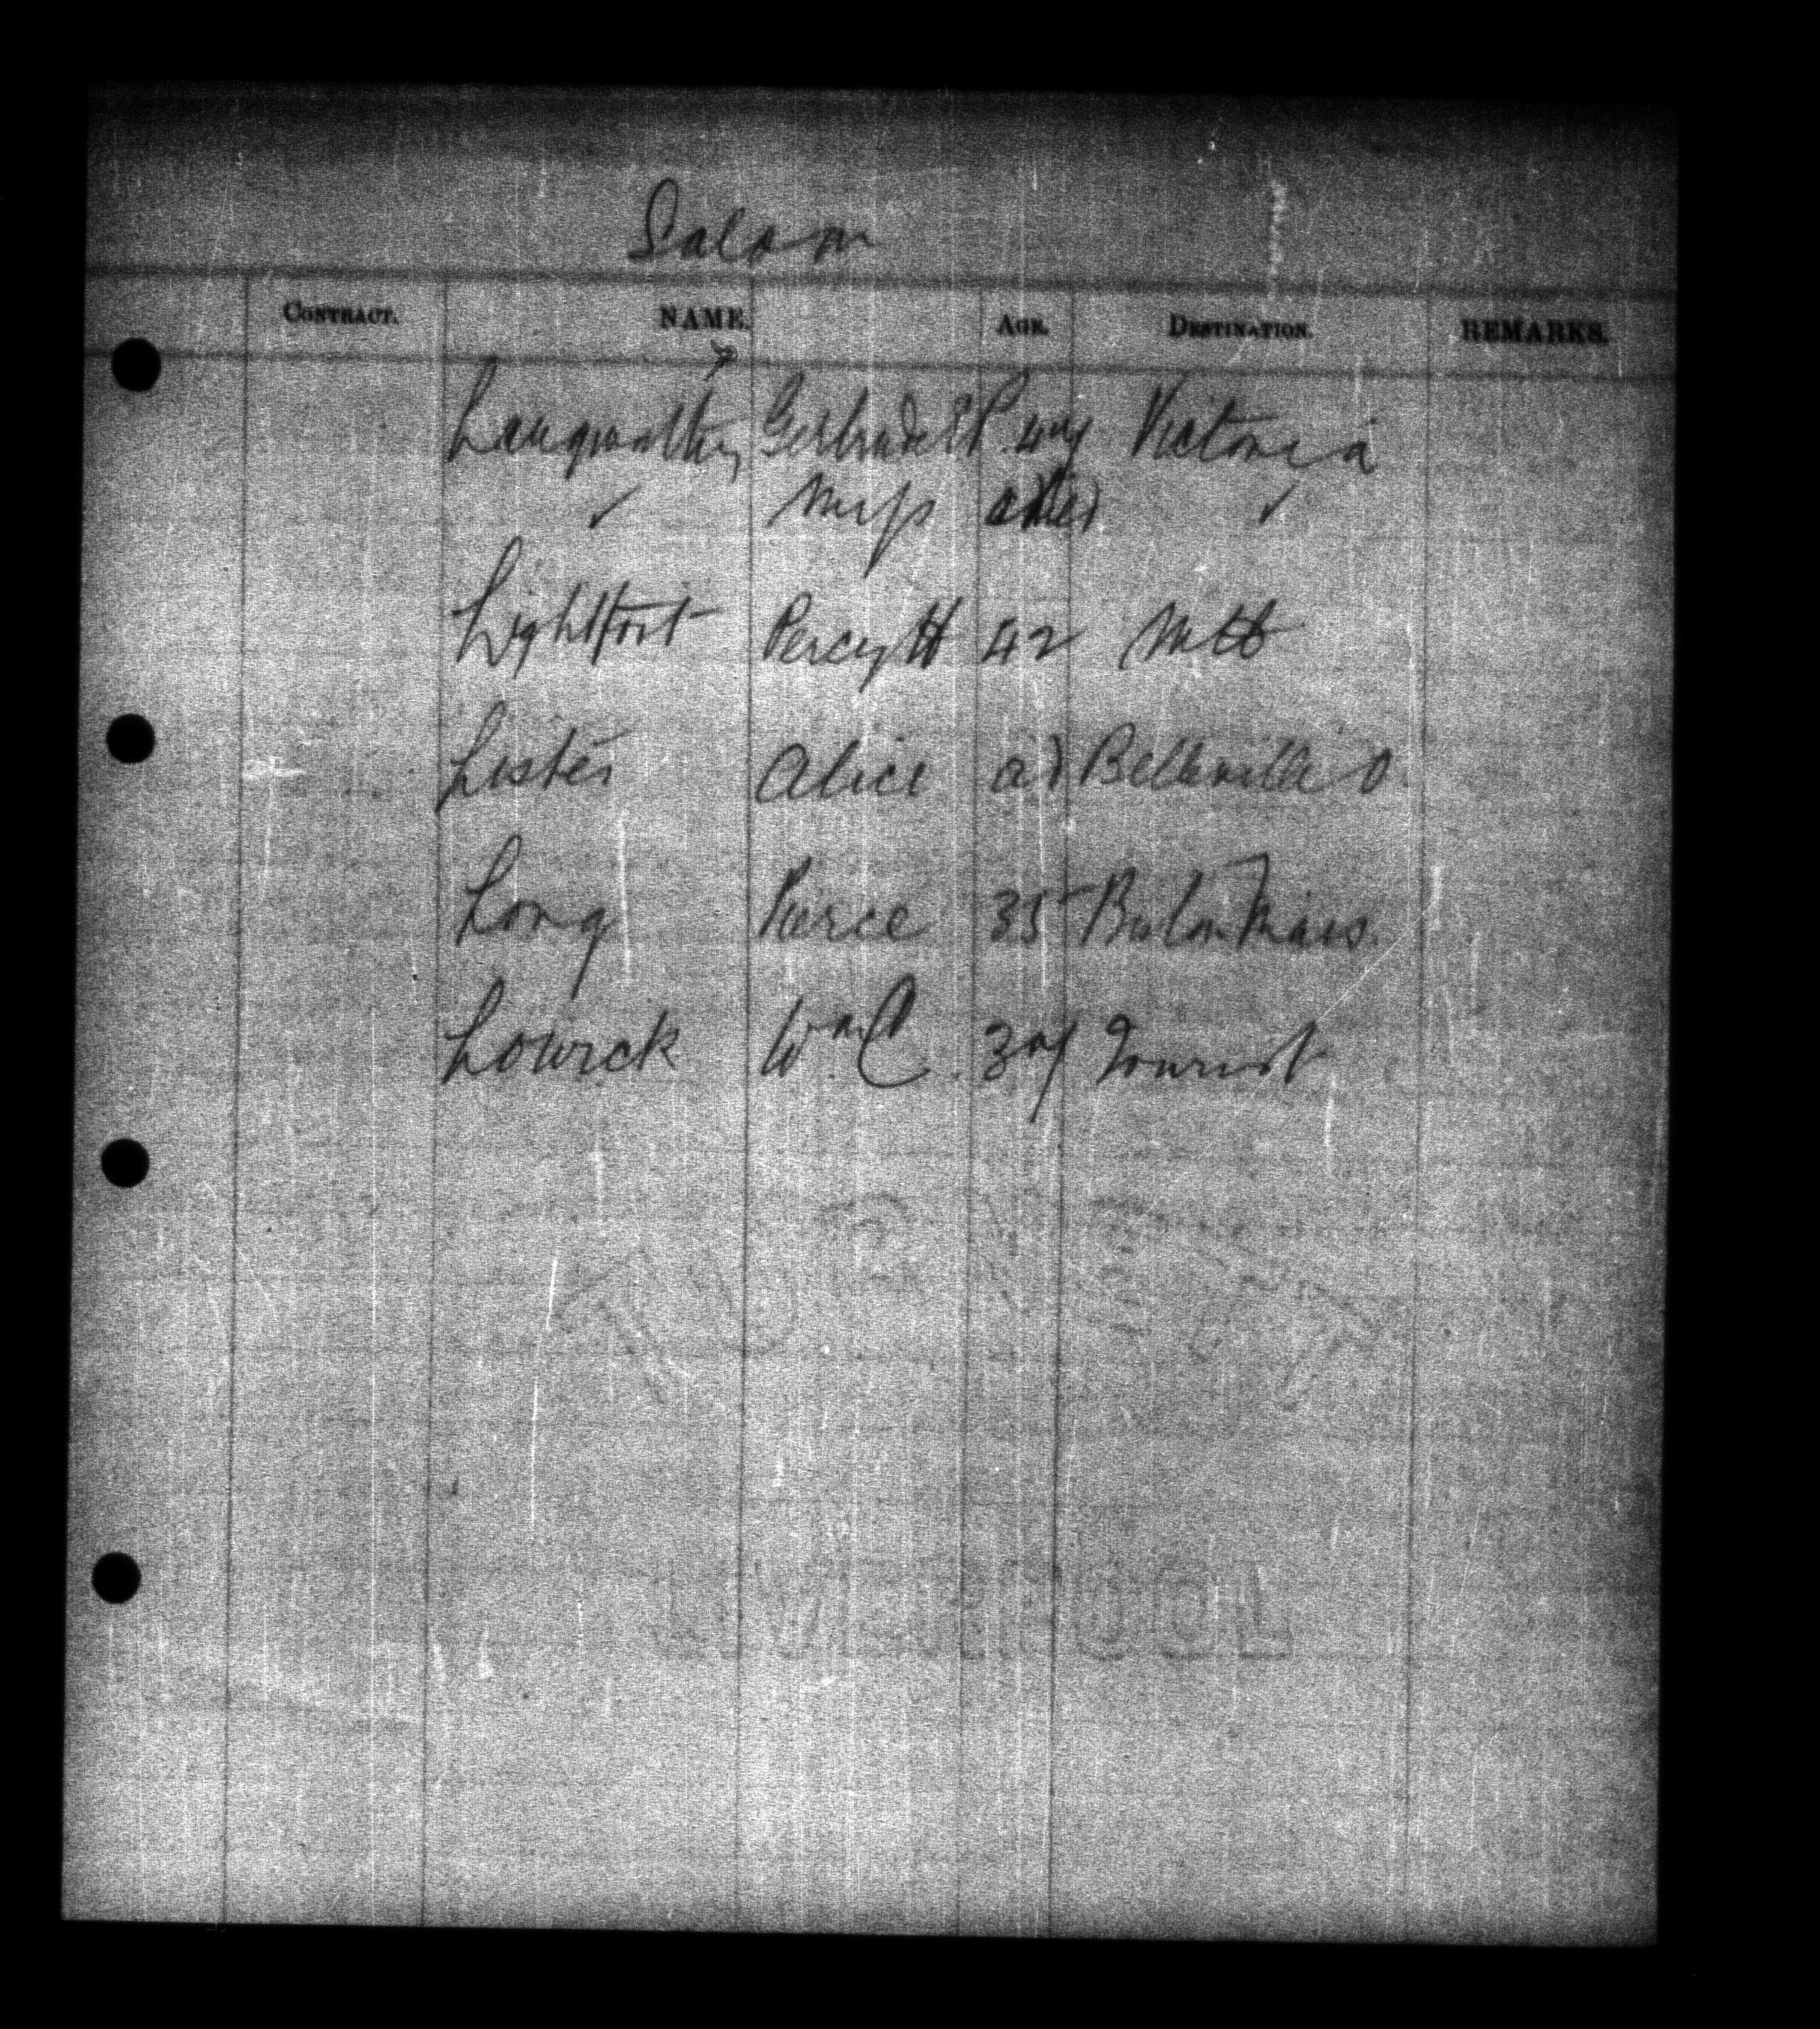 Saloon
CONTRACT. NAME. AGE. DESTINATION. REMARKS.
Langworthy Gertrude E P. 47 Victoria
✓ Miss ✓
Lightfoot Percy H 42 Mtl
Lister Alice ad Belleville O.
Long Pierce 35 Boston Mass.
Lowick Wm C. 37 Tourist
LIVERPOOL